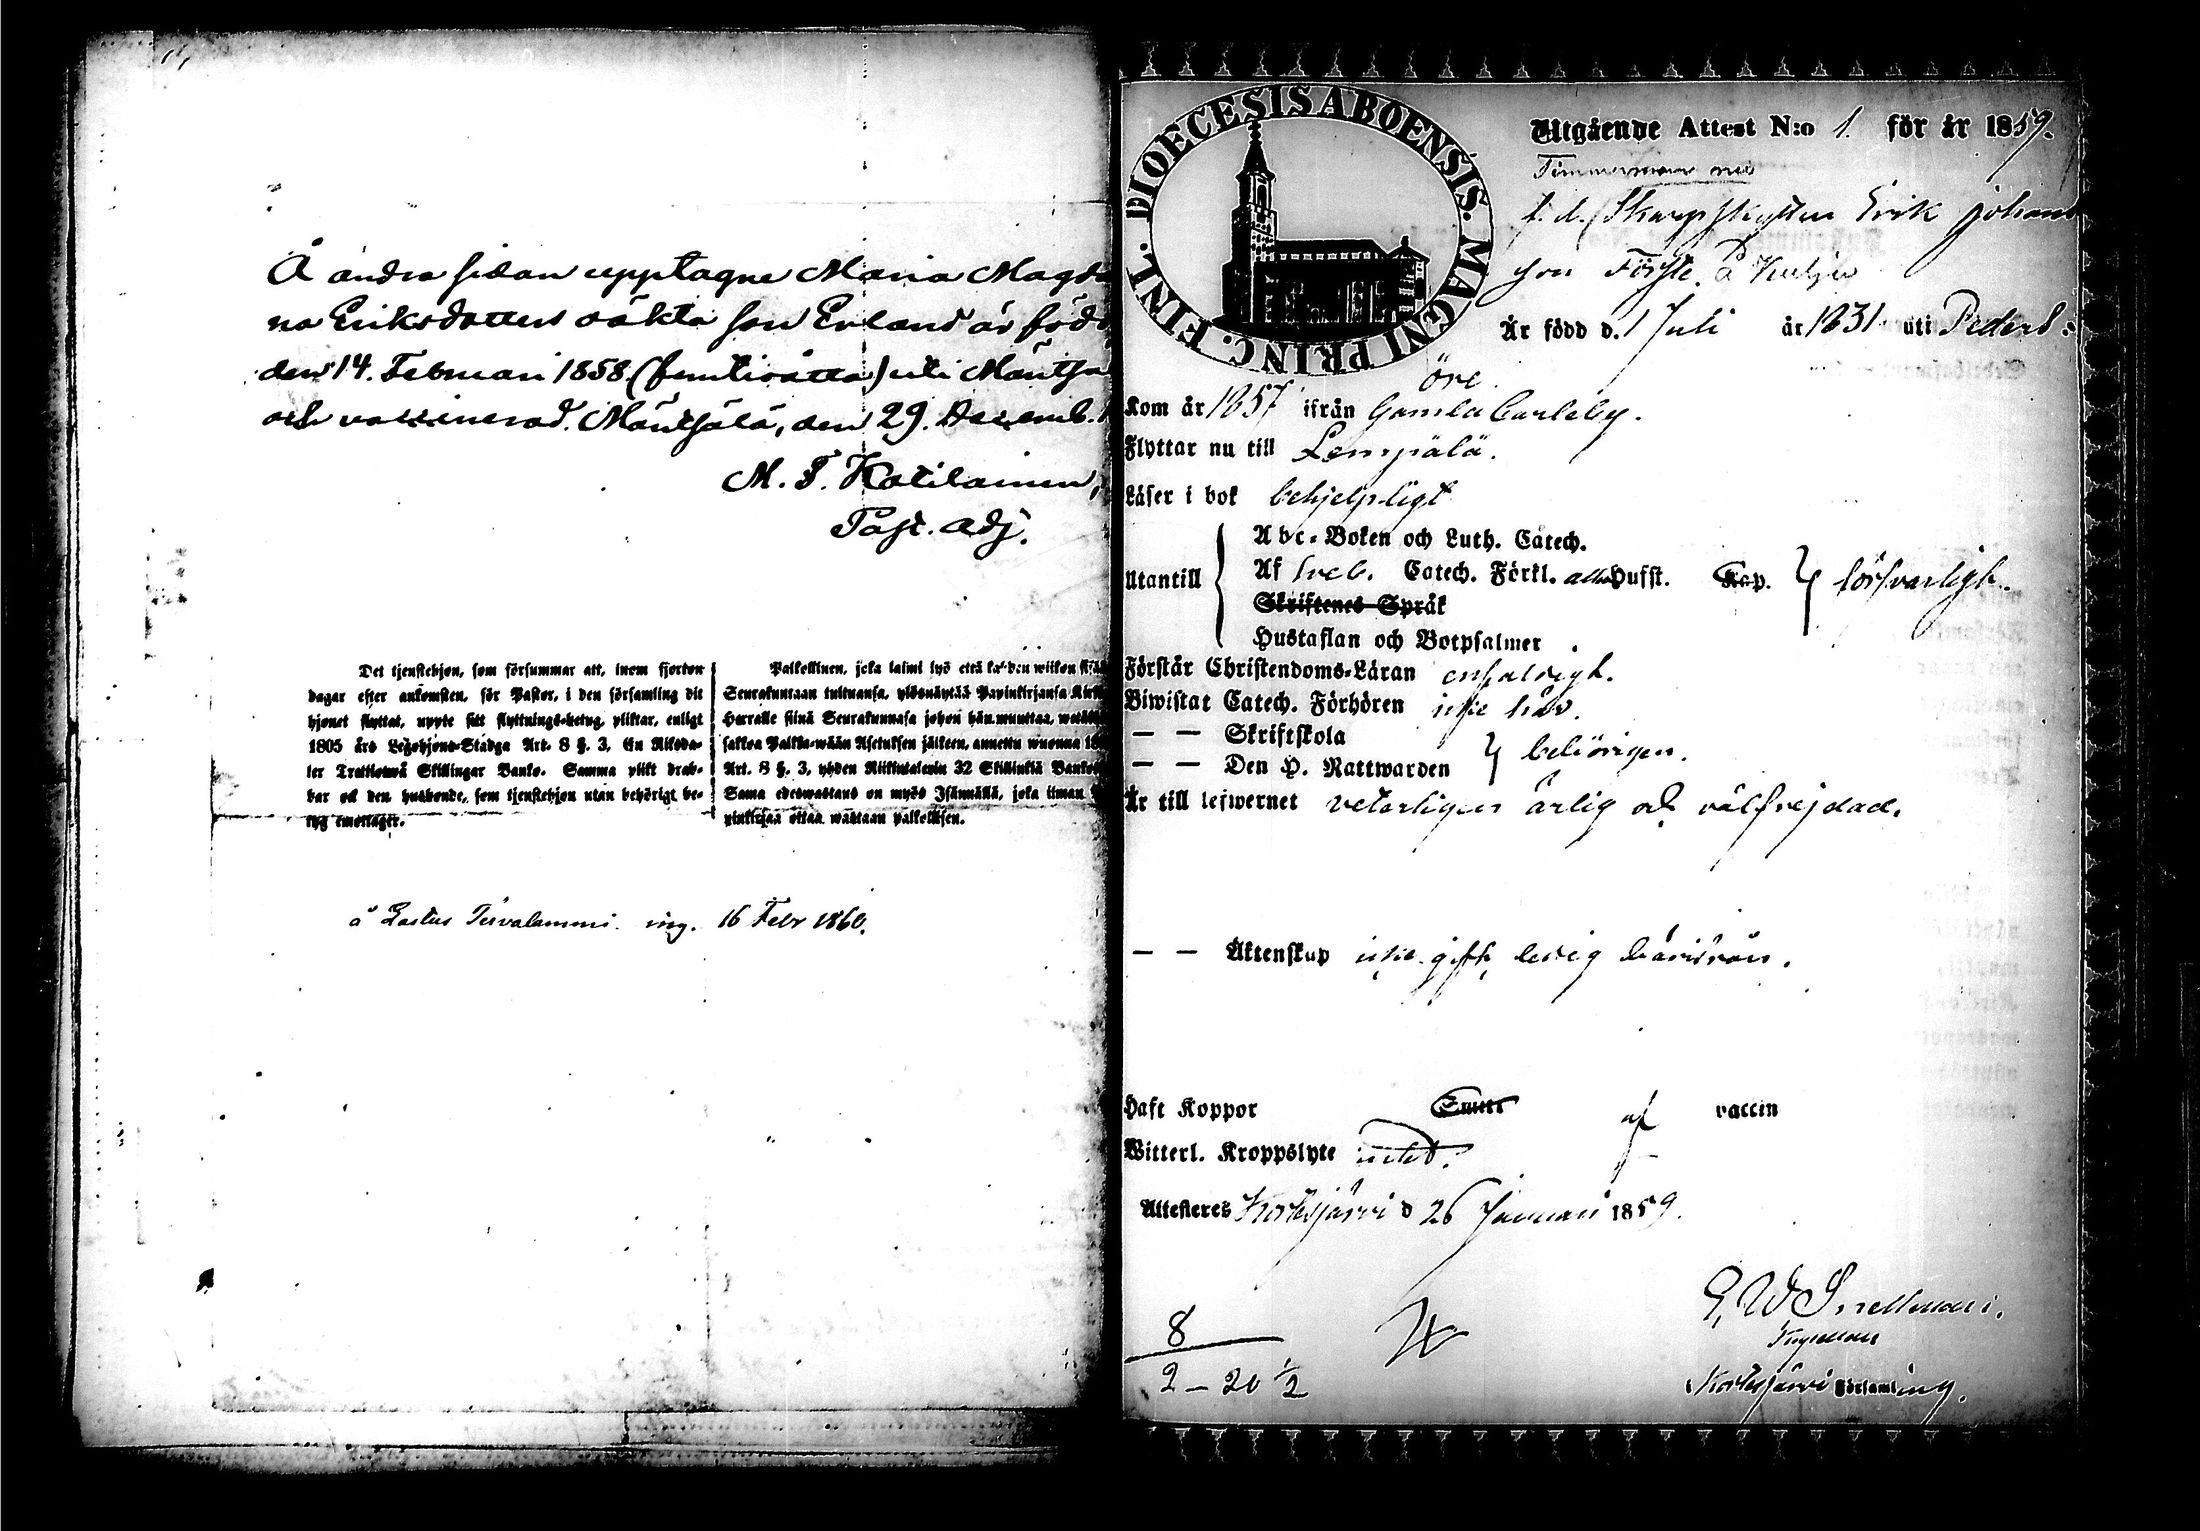 Å andra sidan upptagne Maria Magda
na Eriksdotters oäkta son Erland är född
den 14. Februari 1858. (femtioåtta) uti Mäntsä
och vaccinerad. Mäntsälä, den 29. Decemb. 1
M. F. Kotilainen,
Past. adj.
Det tjenstehjon, som försummar att, inom fjorton
dagar efter ankomsten, för Pastor, i den församling dit
hjonet flyttat, uppte sitt flyttnings-betyg, pliktar, enligt
1805 års Legohjons-Stadga Art. 8 §. 3, En Riksda-
ler Trettiotwå Skillingar Banko. Samma plikt drab-
bar ock den husbonde, som tjenstehjon utan behörigt be-
tyg emottager.
Palkollinen, joka laimi lyö että kahden wiikon
Seurakuntaan tultuansa, ylösnäyttää Papinkirjansa Kirk
Herralle siinä Seurakunnasa johon hän muuttaa, wetää
sakkoa Palkka-wään Asetuksen jälkeen, annettu wuonna 18
Art. 8 §. 3, yhden Riikintalerin 32 Skillinkiä Banko
Sama edeswastaus on myös Isännällä, joka ilman
pinkirjaa ottaa wastaan palkollisen.
å Lastus Tervalammi. ing. 16 Febr 1860.
DIOECESIS ABOENSIS. MAGNI PRINC. FINL.
Utgående Attest N:o 1. för år 1859.
Timmermann
f. d. Skarpskytten Erik Johans
son Förste. å
Är född d. 1 Juli år 1831 uti Peders:
öre.
Kom år 1857 ifrån Gamla Carleby.
Flyttar nu till Lempälä.
Läser i bok behjelpligt
Abc-Boken och Luth. Catech.
Utantill Af Sveb. Catech. Förkl. alla Hufst. Kap. försvarligt.
Skriftenes Språk
Hustaflan och Botpsalmer
Förstår Christendoms-Läran enfaldigt.
Biwistat Catech. Förhören icke här.
— — Skriftskola
behörigen.
— — Den H. Nattwarden
Är till lefwernet veterligen ärlig och välfrejdad.
— — Äktenskap icke gift, ledig härifrån.
Haft Koppor af vaccin
Witterl. Kroppslyte intet.
Attesteres Kortesjärvi d 26 Januari 1859.
E, W Snellman.
Kapellan
Kortesjärvi Församling.
8
2 — 20 1/2